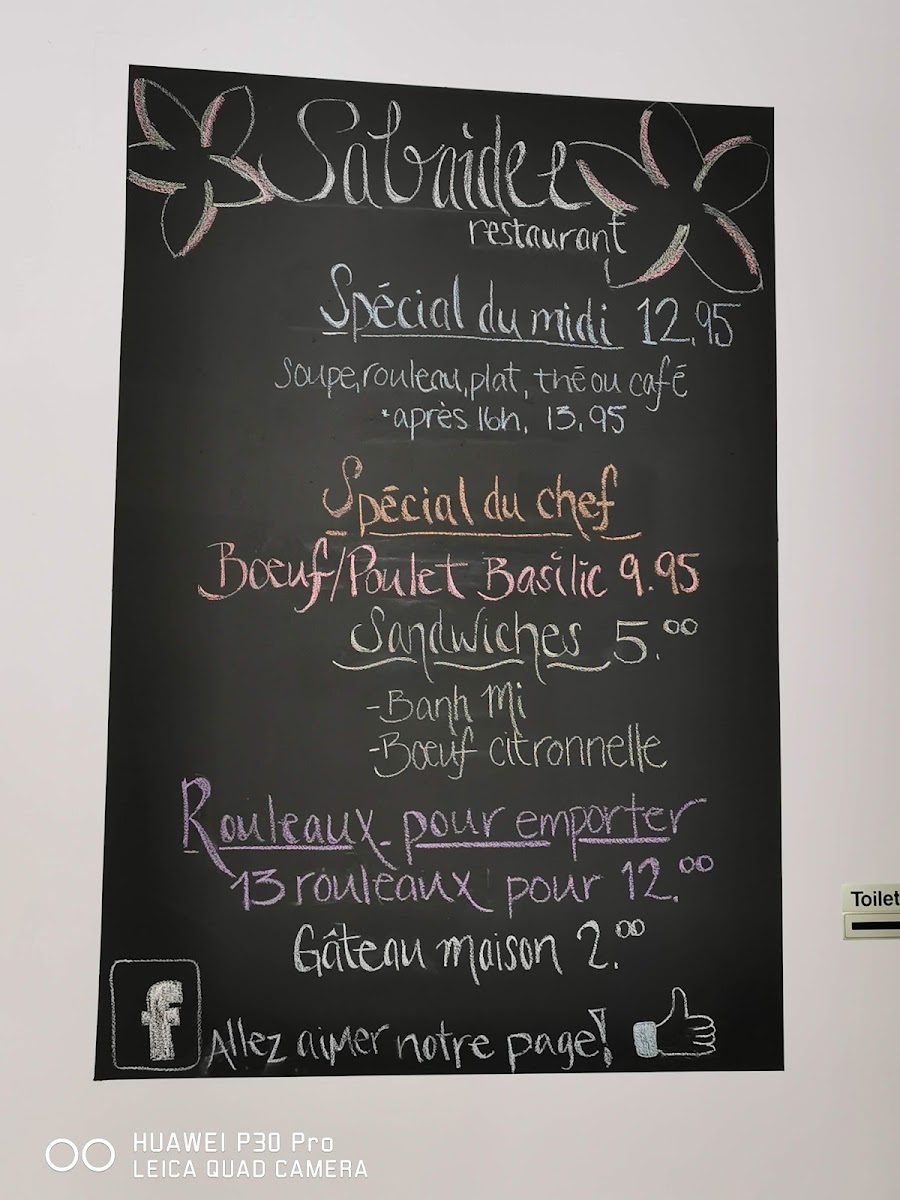 Sabaidee
restaurant
Spécial du midi 12.95
Soupe, rouleau, plat, thé ou café
*après 16h, 13.95
Spécial du chef
Boeuf/Poulet Basilic 9.95
Sandwiches 5.00
-Banh Mi
-Boeuf citronnelle
Rouleaux pour emporter
13 rouleaux pour 12.00
Gâteau maison 2.00
f Allez aimer notre page!
Toilet
HUAWEI P30 Pro
LEICA QUAD CAMERA